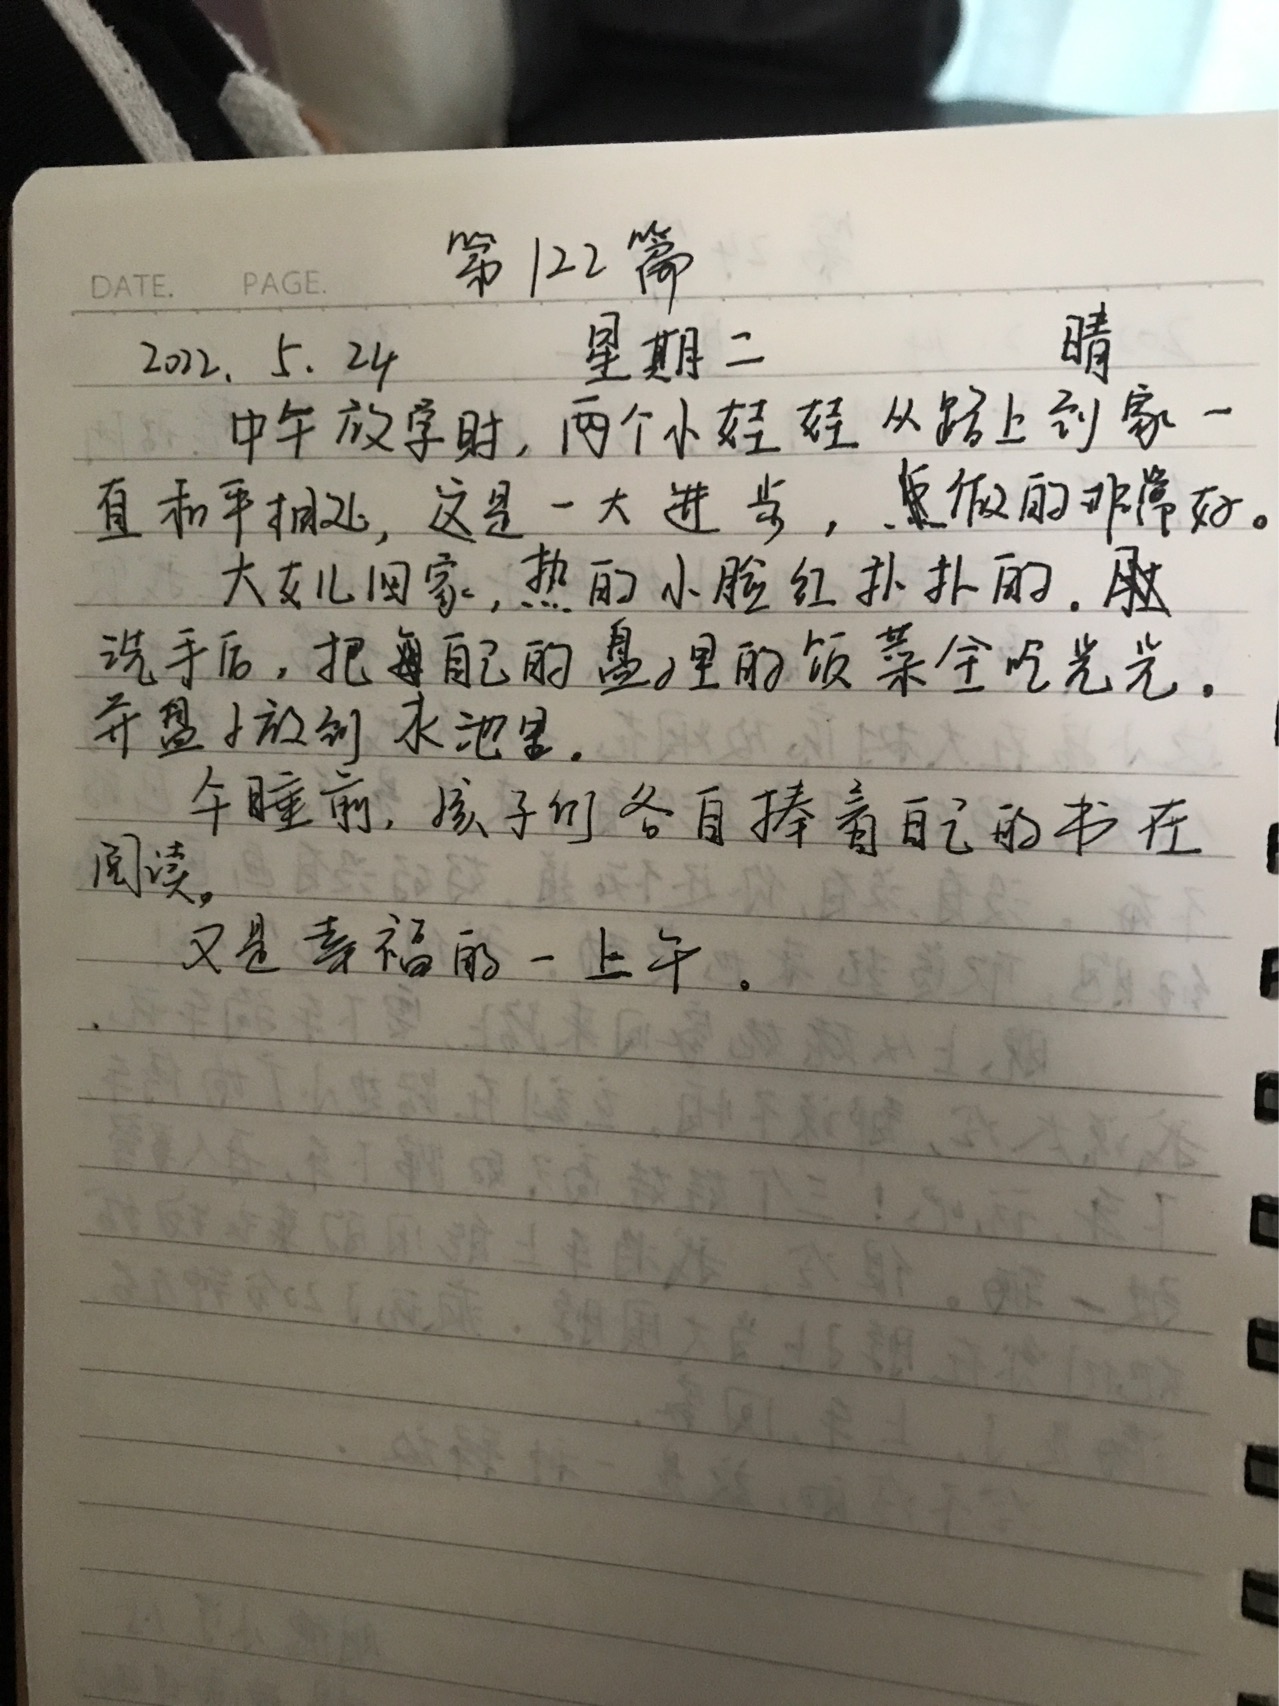 第122篇
DATE. PAGE.
2022. 5. 24 星期二 晴
中午放学时，两个小娃娃从路上到家一
直和平相处，这是一大进步，做的非常好。
大女儿回家，热的小脸红扑扑的.
洗手后，把自己的盘子里的饭菜全吃光光.
并盘子放到水池里.
午睡前，孩子们各自捧着自己的书在
阅读。
又是幸福的一上午.